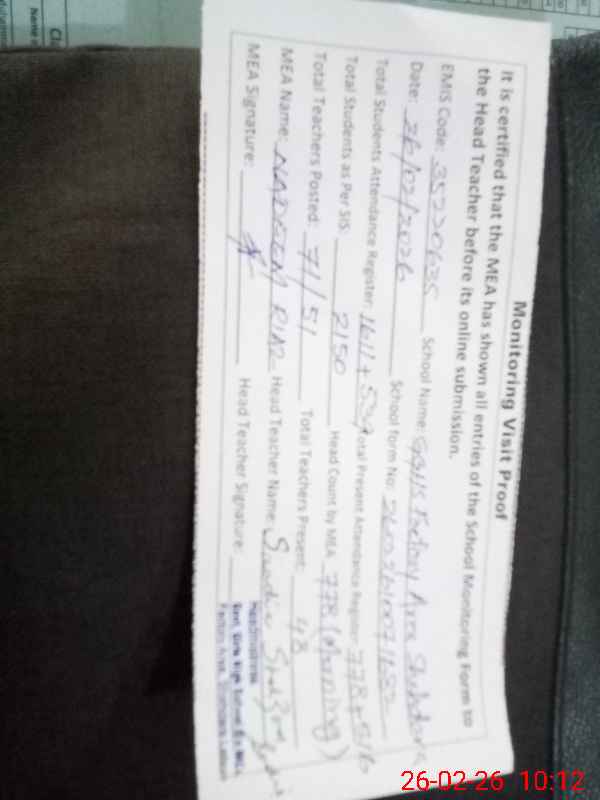 Monitoring Visit Proof
It is certified that the MEA has shown all entries of the School Monitoring Form to
the Head Teacher before its online submission.
EMIS Code: 35220625 School Name: Factory Area
Date: 26/02/2026 School form No:
Total Students Attendance Register: 1611 + 539 Total Present Attendance Register: 778 + 516
Total Students as Per SIS: 2150 Head Count by MEA: 778 (Morning)
Total Teachers Posted: 71/51 Total Teachers Present: 48
MEA Name: RIAZ Head Teacher Name:
MEA Signature: Head Teacher Signature:
Headmistress
Govt. Girls High School
Factory Area,
26-02-26 10:12